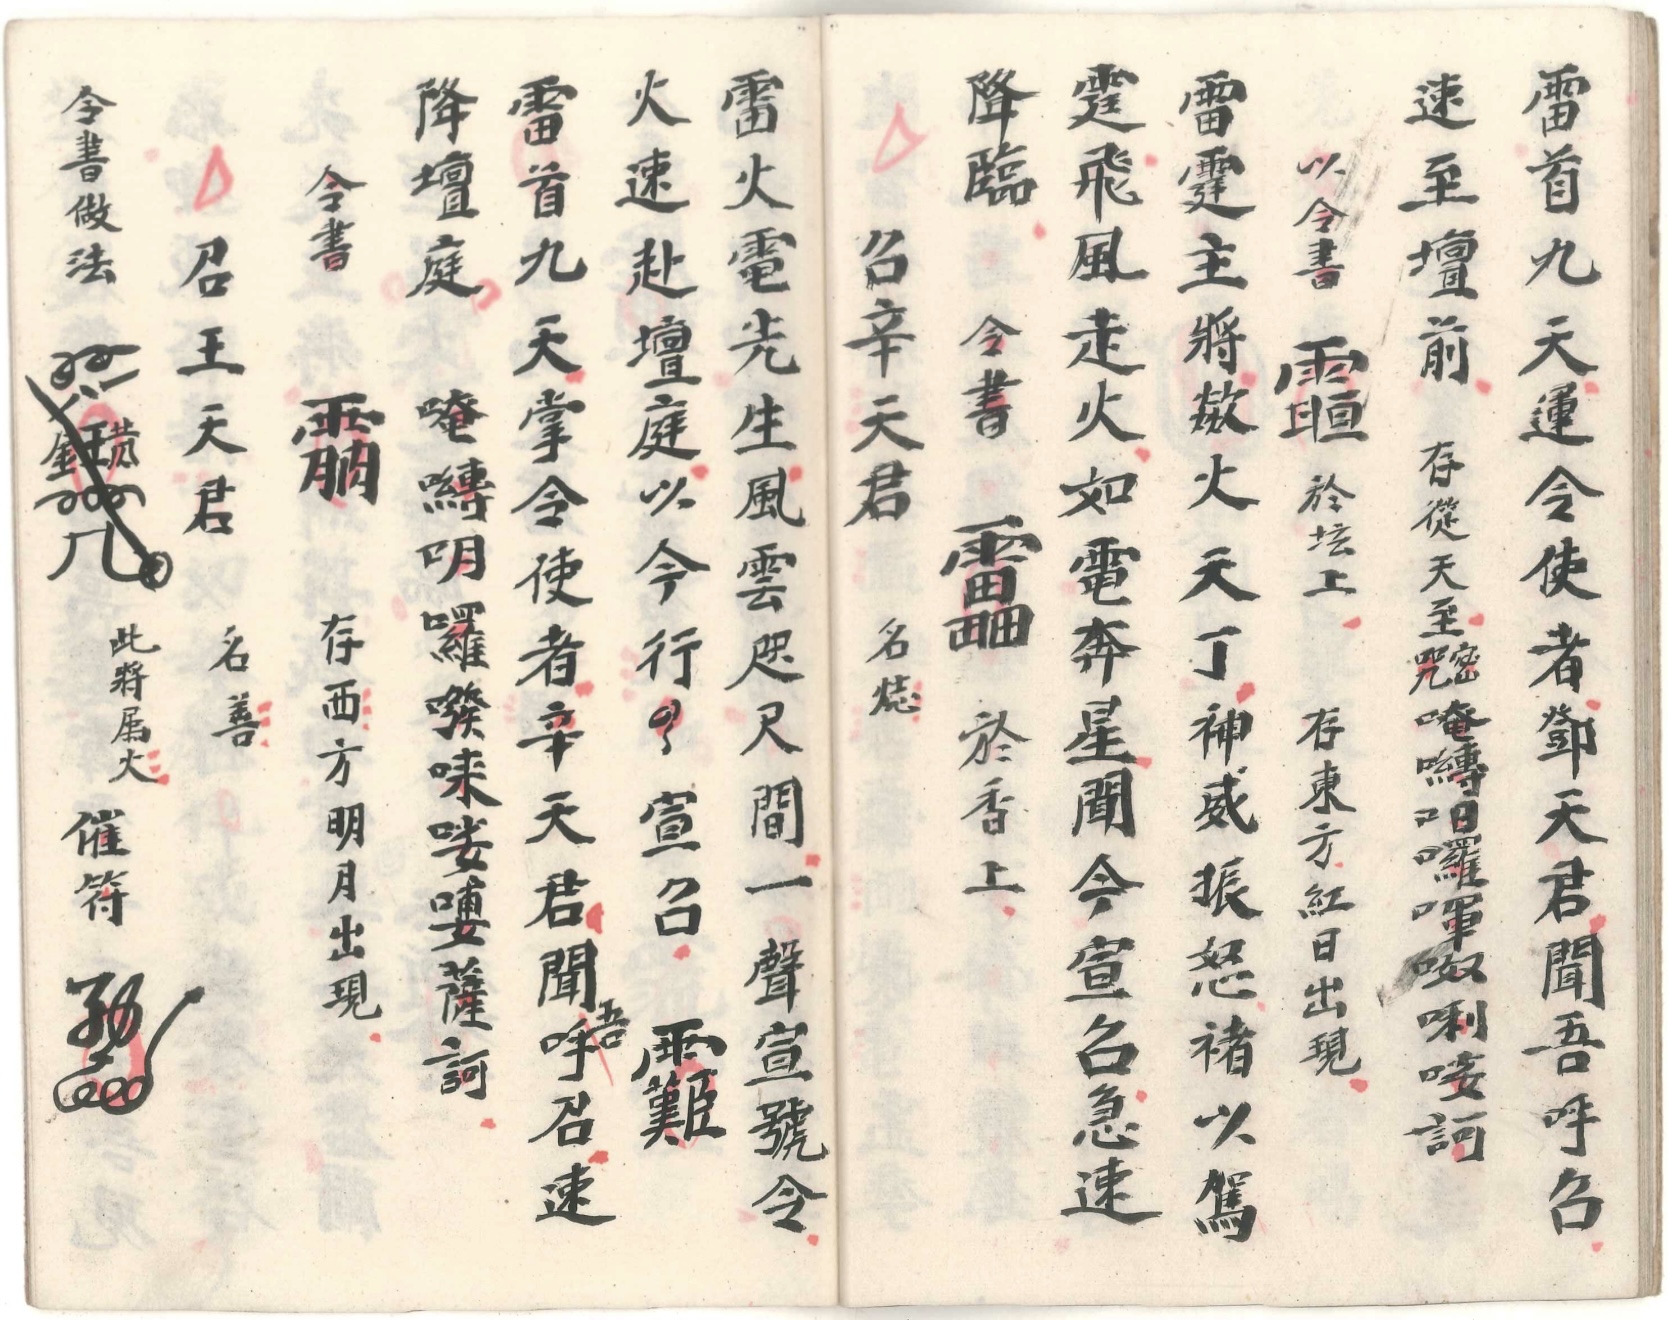 雷首九天運令使者鄧天君聞吾呼召
速至壇前 存從天至 密咒 唵囀𠰻囉㖔呶唎𠹌訶
以令書 䨩 於坛上 存東方紅日出現
雷霆主將歘火天丁神威振怒褚以駕
霆飛風走火如電奔星聞今宣召急速
降臨 令書 靁 於香上
召辛天君 名
雷火電先生風雲咫尺間一聲宣號令
火速赴壇庭以今行 宣召
雷首九天掌令使者辛天君聞吾呼召速
降壇庭 唵囀明囉 唻嘍 薩訶
令書 存西方明月出現
召王天君 名善
令書做法 此將属火 催符